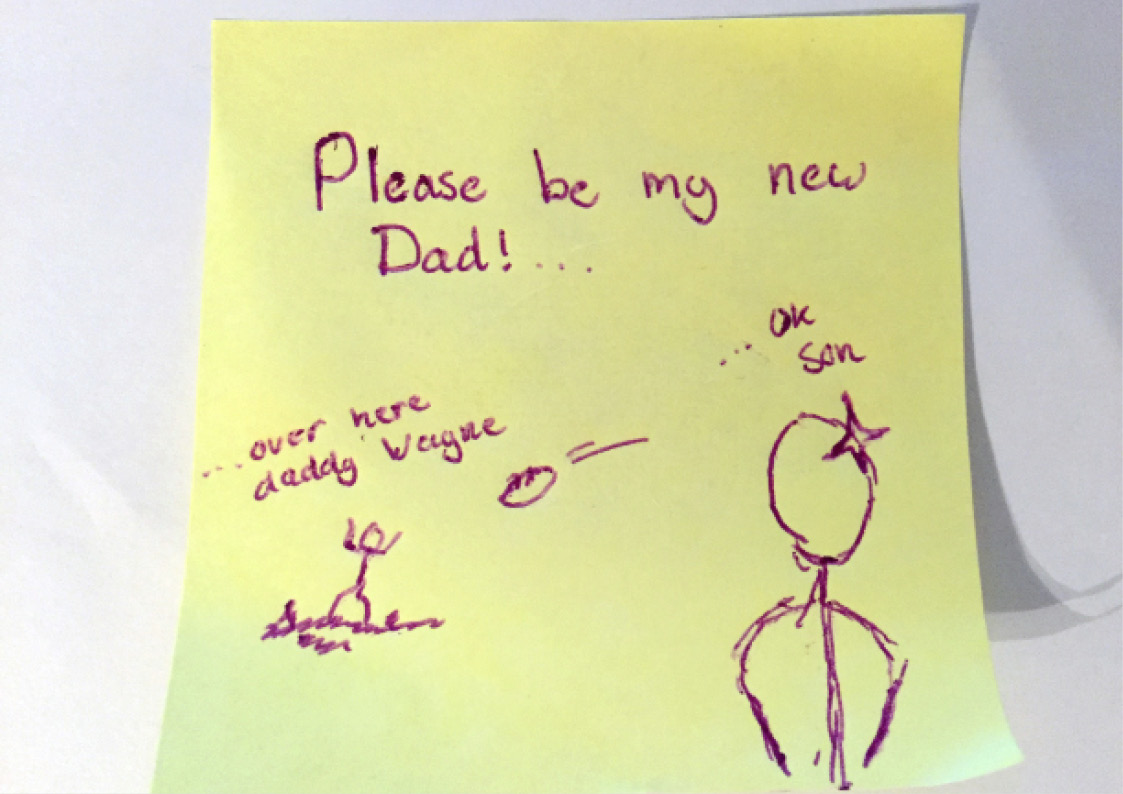 Please be my new
Dad!...
... OK
son
...over here
daddy Wagne